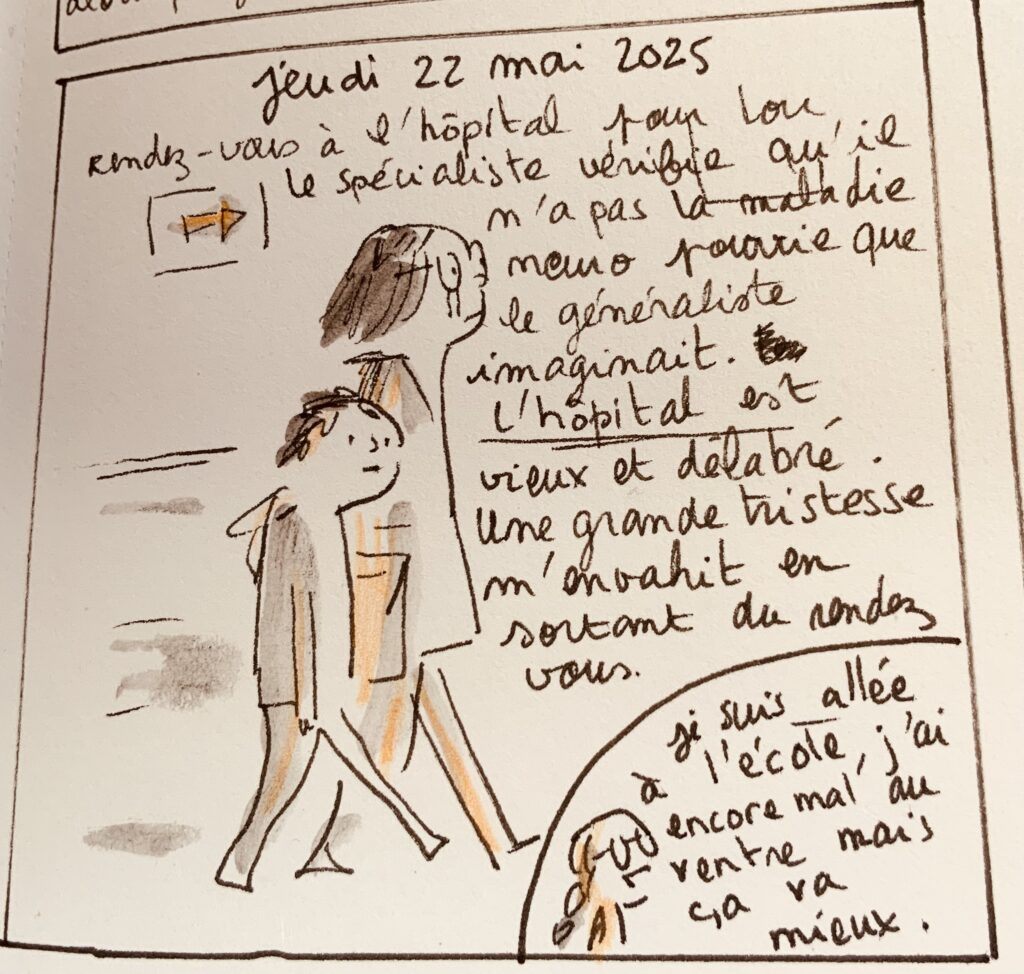 jeudi 22 mai 2025
rendez-vous à l'hôpital pour Lou
le spécialiste vérifie qu'il
n'a pas la maladie
neuro pourrie que
le généraliste
imaginait.
L'hôpital est
vieux et délabré.
Une grande tristesse
m'envahit en
sortant du rendez
vous.
je suis allée
à l'école, j'ai
encore mal au
ventre mais
ça va
mieux.